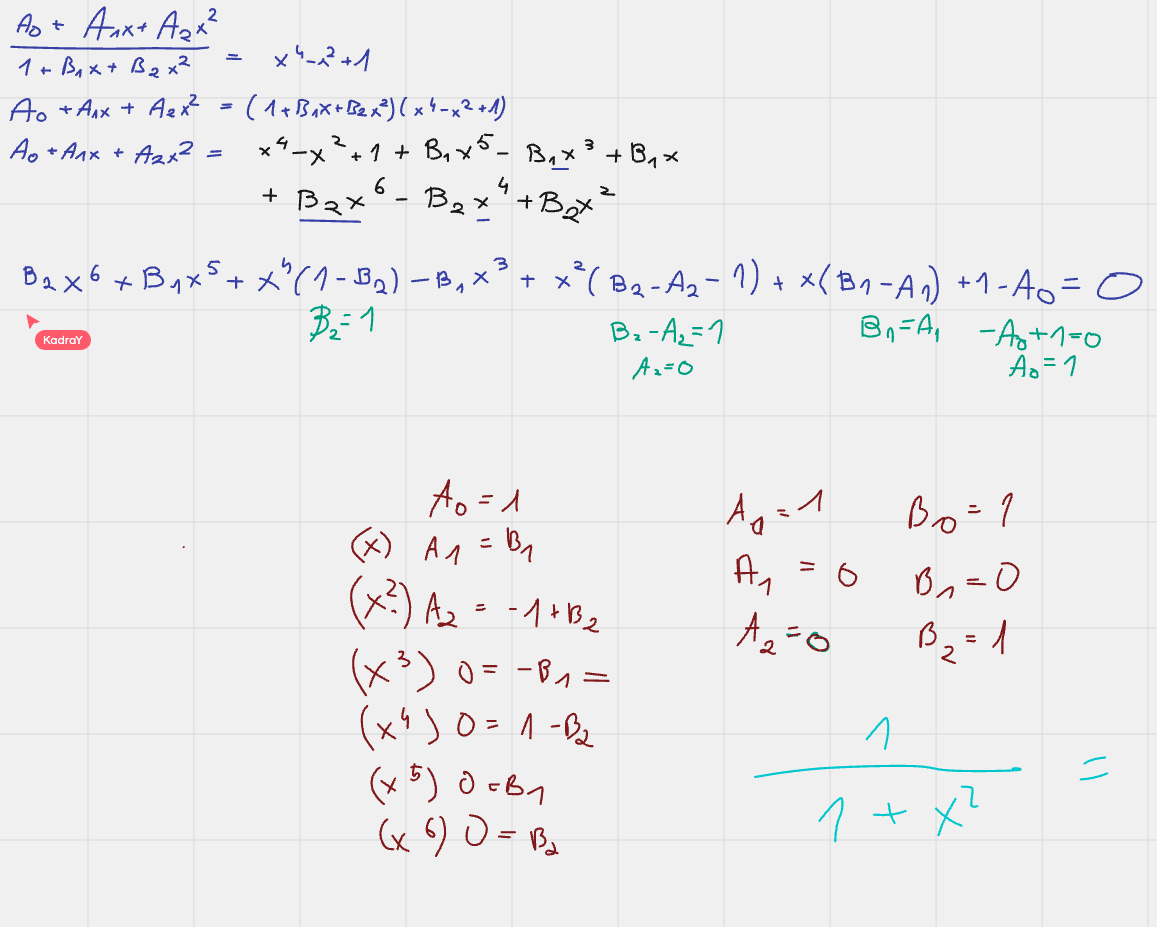 A₀ + A₁x + A₂x²
1 + B₁x + B₂x² = x⁴ - x² + 1
A₀ + A₁x + A₂x² = (1 + B₁x + B₂x²)(x⁴ - x² + 1)
A₀ + A₁x + A₂x² = x⁴ - x² + 1 + B₁x⁵ - B₁x³ + B₁x
+ B₂x⁶ - B₂x⁴ + B₂x²
B₂x⁶ + B₁x⁵ + x⁴(1 - B₂) - B₁x³ + x²(B₂ - A₂ - 1) + x(B₁ - A₁) + 1 - A₀ = 0
B₂ = 1 B₂ - A₂ = 1 B₁ = A₁ -A₀ + 1 = 0
KadraY A₂ = 0 A₀ = 1
A₀ = 1
(x) A₁ = B₁
(x²) A₂ = -1 + B₂
(x³) 0 = -B₁ =
(x⁴) 0 = 1 - B₂
(x⁵) 0 = B₁
(x⁶) 0 = B₂
A₀ = 1 B₀ = 1
A₁ = 0 B₁ = 0
A₂ = 0 B₂ = 1
1
1 + x² =